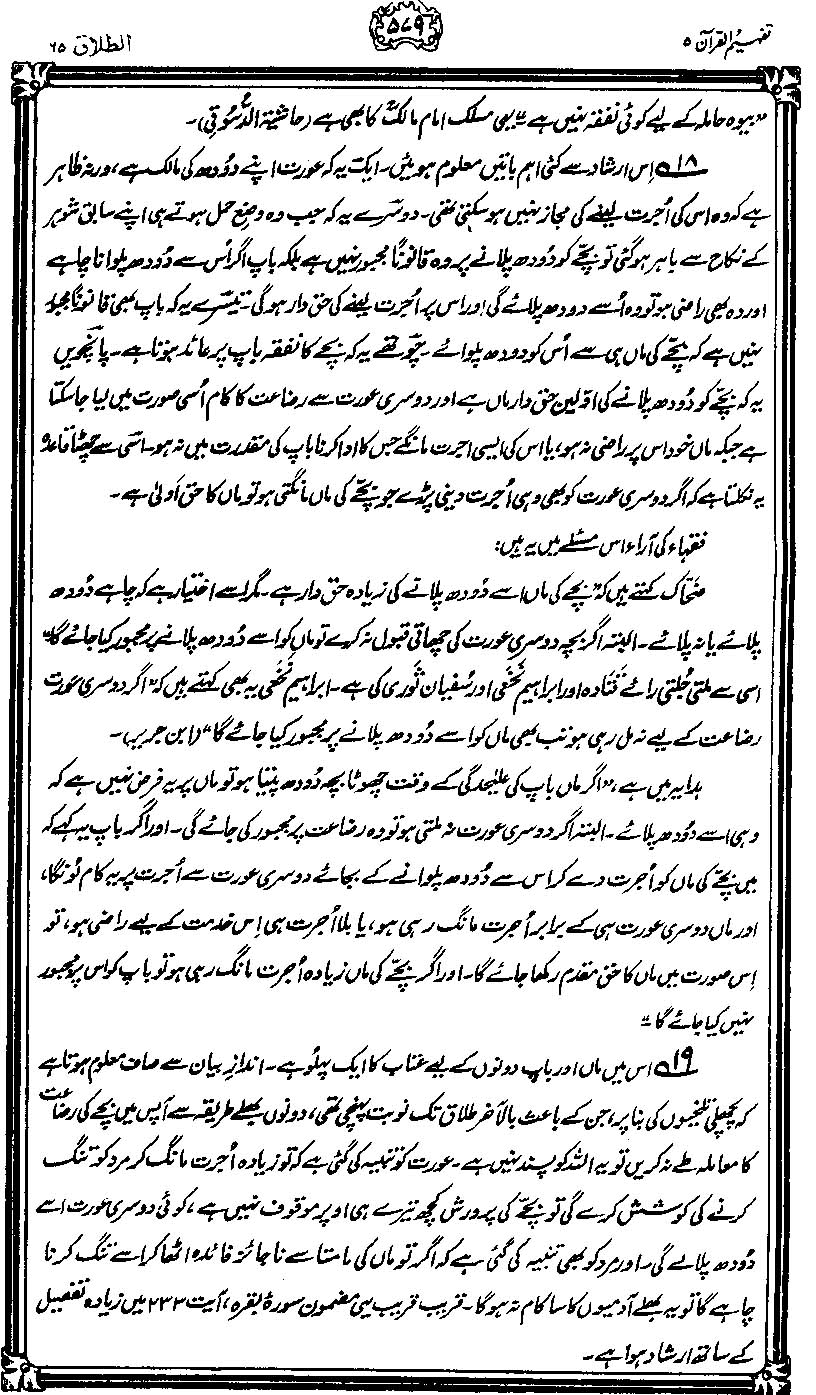 تفہیم القرآن ۵
۵۷۹
الطلاق ۶۵
”بیوہ حاملہ کے لیے کوئی نفقہ نہیں ہے“ یہی مسلک امام مالکؒ کا بھی ہے (حاشیۃ الدُّسُوقی)۔
۱۸ اِس ارشاد سے کئی اہم باتیں معلوم ہوئیں۔ ایک یہ کہ عورت اپنے دُودھ کی مالک ہے، ورنہ ظاہر
ہے کہ وہ اس کی اُجرت لینے کی مجاز نہیں ہو سکتی تھی۔ دوسرے یہ کہ جب وہ وضعِ حمل ہوتے ہی اپنے سابق شوہر
کے نکاح سے باہر ہو گئی تو بچّے کو دُودھ پلانے پر وہ قانوناً مجبور نہیں ہے بلکہ باپ اگر اُس سے دُودھ پلوانا چاہے
اور وہ بھی راضی ہو تو وہ اُسے دودھ پلائے گی اور اس پر اُجرت لینے کی حق دار ہوگی۔ تیسرے یہ کہ باپ بھی قانوناً مجبور
نہیں ہے کہ بچّے کی ماں ہی سے اُس کو دودھ پلوائے۔ چوتھے یہ کہ بچّے کا نفقہ باپ پر عائد ہوتا ہے۔ پانچویں
یہ کہ بچّے کو دُودھ پلانے کی اوّلین حق دار ماں ہے اور دوسری عورت سے رضاعت کا کام اُسی صورت میں لیا جا سکتا
ہے جبکہ ماں خود اس پر راضی نہ ہو، یا اس کی ایسی اجرت مانگے جس کا ادا کرنا باپ کی مقدرت میں نہ ہو۔ اسی سے چھٹا قاعدہ
یہ نکلتا ہے کہ اگر دوسری عورت کو بھی وہی اُجرت دینی پڑے جو بچّے کی ماں مانگتی ہو تو ماں کا حق اَولیٰ ہے۔
فقہاء کی آراء اس مسئلے میں یہ ہیں:
ضحّاک کہتے ہیں کہ ”بچّے کی ماں اسے دُودھ پلانے کی زیادہ حق دار ہے۔ مگر اسے اختیار ہے کہ چاہے دُودھ
پلائے یا نہ پلائے۔ البتہ اگر بچہ دوسری عورت کی چھاتی قبول نہ کرے تو ماں کو اسے دُودھ پلانے پر مجبور کیا جائے گا“
اسی سے ملتی جلتی رائے قَتادہ اور ابراہیم نَخَعی اور سُفیان ثَوری کی ہے۔ ابراہیم نَخَعی یہ بھی کہتے ہیں کہ ”اگر دوسری عورت
رضاعت کے لیے نہ مل رہی ہو تب بھی ماں کو اسے دُودھ پلانے پر مجبور کیا جائے گا“ (ابن جریر)۔
ہدایہ میں ہے، ”اگر ماں باپ کی علیٰحدگی کے وقت چھوٹا بچہ دُودھ پیتا ہو تو ماں پر یہ فرض نہیں ہے کہ
وہی اسے دُودھ پلائے۔ البتہ اگر دوسری عورت نہ ملتی ہو تو وہ رضاعت پر مجبور کی جائے گی۔ اور اگر باپ یہ کہے کہ
میں بچّے کی ماں کو اُجرت دے کر اس سے دُودھ پلوانے کے بجائے دوسری عورت سے اُجرت پر یہ کام لُونگا،
اور ماں دوسری عورت ہی کے برابر اُجرت مانگ رہی ہو، یا بلا اُجرت ہی اِس خدمت کے لیے راضی ہو، تو
اِس صورت میں ماں کا حق مقدم رکھا جائے گا۔ اور اگر بچّے کی ماں زیادہ اُجرت مانگ رہی ہو تو باپ کو اس پر مجبور
نہیں کیا جائے گا“
۱۹ اس میں ماں اور باپ دونوں کے لیے عتاب کا ایک پہلُو ہے۔ اندازِ بیان سے صاف معلوم ہوتا ہے
کہ پچھلی تلخیوں کی بنا پر، جن کے باعث بالآخر طلاق تک نوبت پہنچی تھی، دونوں بھلے طریقہ سے آپس میں بچّے کی رضاعت
کا معاملہ طے نہ کریں تو یہ اللہ کو پسند نہیں ہے۔ عورت کو تنبیہ کی گئی ہے کہ تو زیادہ اُجرت مانگ کر مرد کو تنگ
کرنے کی کوشش کرے گی تو بچّے کی پرورش کچھ تیرے ہی اوپر موقوف نہیں ہے، کوئی دوسری عورت اسے
دُودھ پلا لے گی۔ اور مرد کو بھی تنبیہ کی گئی ہے کہ اگر تو ماں کی مامتا سے ناجائز فائدہ اٹھا کر اسے تنگ کرنا
چاہے گا تو یہ بھلے آدمیوں کا سا کام نہ ہوگا۔ قریب قریب یہی مضمون سورۂ بقرہ، آیت ۲۳۳ میں زیادہ تفصیل
کے ساتھ ارشاد ہوا ہے۔